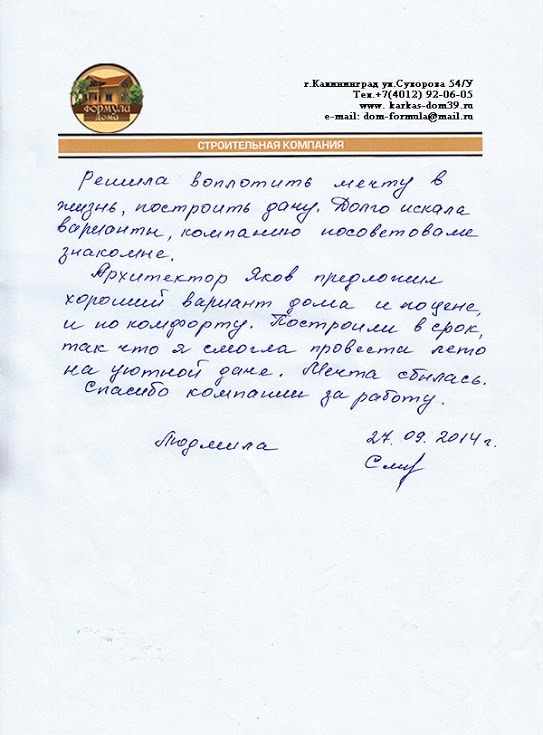 ФОРМУЛА
ДОМА
г.Калининград ул.Суворова 54/У
Тел.+7(4012) 92-06-05
www. karkas-dom39.ru
e-mail: dom-formula@mail.ru
СТРОИТЕЛЬНАЯ КОМПАНИЯ
Решила воплотить мечту в
жизнь, построить дачу. Долго искала
варианты, компанию посоветовали
знакомые.
Архитектор Яков предложил
хороший вариант дома и по цене,
и по комфорту. Построили в срок,
так что я смогла провести лето
на уютной даче. Мечта сбылась.
Спасибо компании за работу.
Людмила 27.09.2014 г.